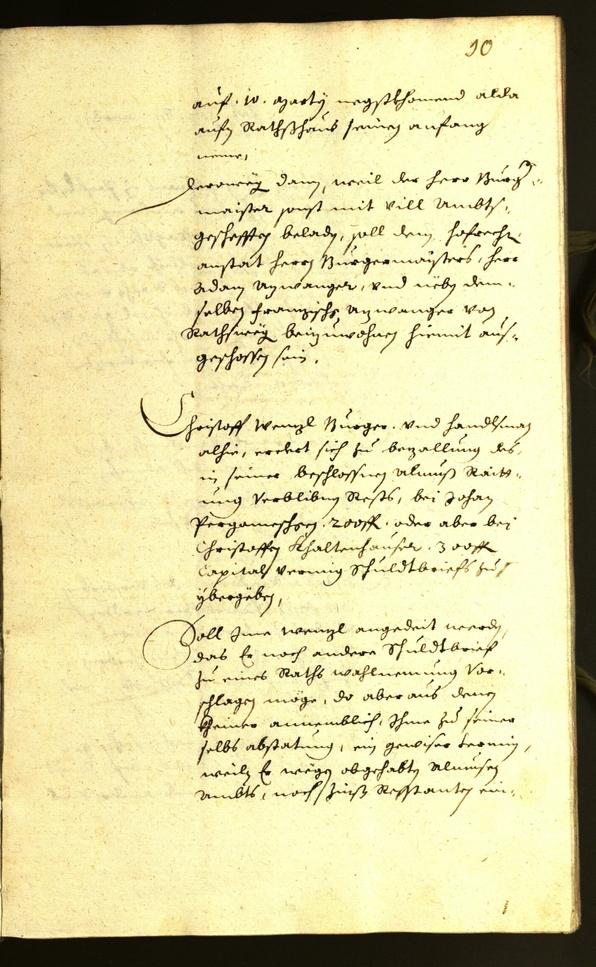 90
auf .10. Marty negstkhomend alda
aufm Rathßhaus seinen anfang
neme,
Derowegen dann, weil der herr Burger-
maister sonst mit vill Ambts-
geschefften beladen, soll dem hofrecht
anstat herrn Burgermaisters, herr
Adam und neben dem-
selben Franzisch von
Rathswegen beizuwohnen hiemit aus-
geschossen sein.
Christoff Wenzl Burger. und handlsman
alhie, erclert sich zu bezallung des
in seiner beschlossnen Almueß Raitt-
ung verblibnen Rests, bei Johan
200 fl. oder aber bei
Christoffen Khaltenhauser .300 fl.
Capital vermig Schuldtbriefs zu
ybergeben,
Soll Ime Wenzl angedeit werden,
das Er noch andere Schuldtbrief
zu eines Raths wahlnemung vor-
schlagen möge, do aber aus denen
kheiner annemblich, Ihme zu seiner
selbs abstatung, ein gewiser termin,
weiln Er wegen obgehabten Almuesen
Ambts, noch Zinß Resstanten ein-